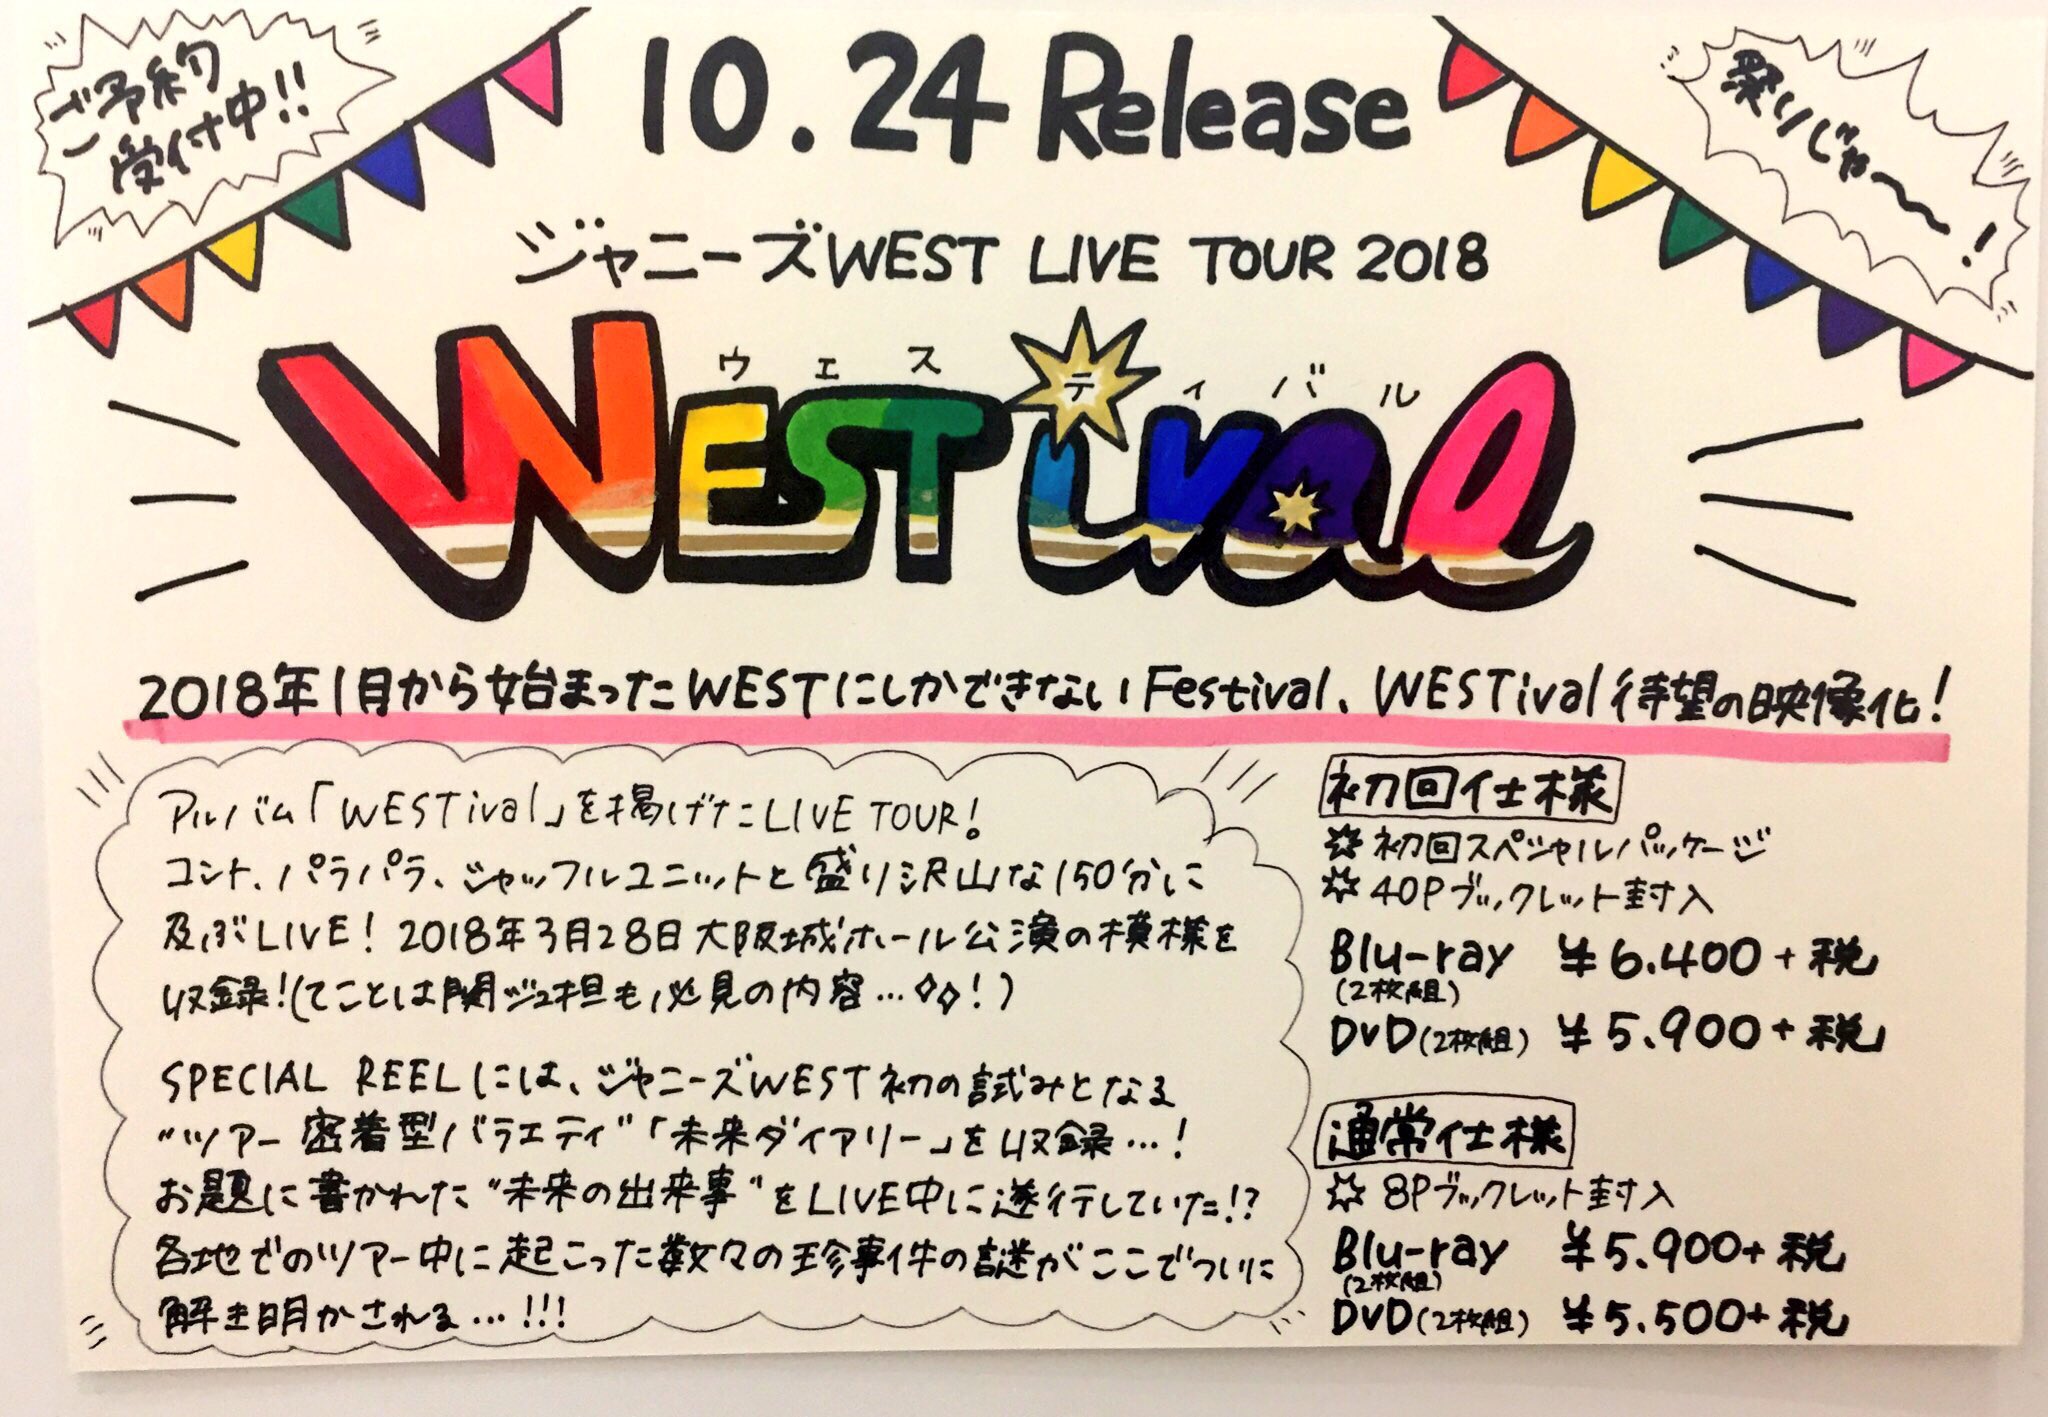 ご予約
受付中!!
10.24 Release
祭りじゃ〜!
ジャニーズWEST LIVE TOUR 2018
ウエスティバル
WESTival
2018年1月から始まったWESTにしかできないFestival、WESTival待望の映像化!
アルバム「WESTival」を掲げたLIVE TOUR!
コント、パラパラ、シャッフルユニットと盛り沢山な150分に
及ぶLIVE! 2018年3月28日大阪城ホール公演の模様を
収録!(てことは関ジュ担も必見の内容…!)
SPECIAL REELには、ジャニーズWEST初の試みとなる
"ツアー密着型バラエティ"「未来ダイアリー」を収録…!
お題に書かれた"未来の出来事"をLIVE中に遂行していた!?
各地でのツアー中に起こった数々の珍事件の謎がここでついに
解き明かされる…!!!
初回仕様
初回スペシャルパッケージ
40Pブックレット封入
Blu-ray ¥6.400+税
(2枚組)
DVD(2枚組) ¥5.900+税
通常仕様
8Pブックレット封入
Blu-ray ¥5.900+税
(2枚組)
DVD(2枚組) ¥5.500+税